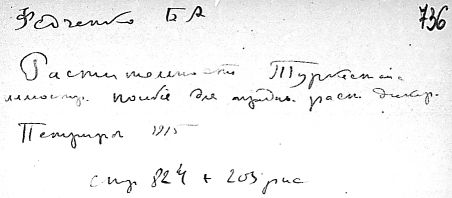 Федченко БА 736
Растительность Туркестана
иллюстр. пособие для определ. раст. дикор.
Петроград 1915
стр 824 + 203 рис